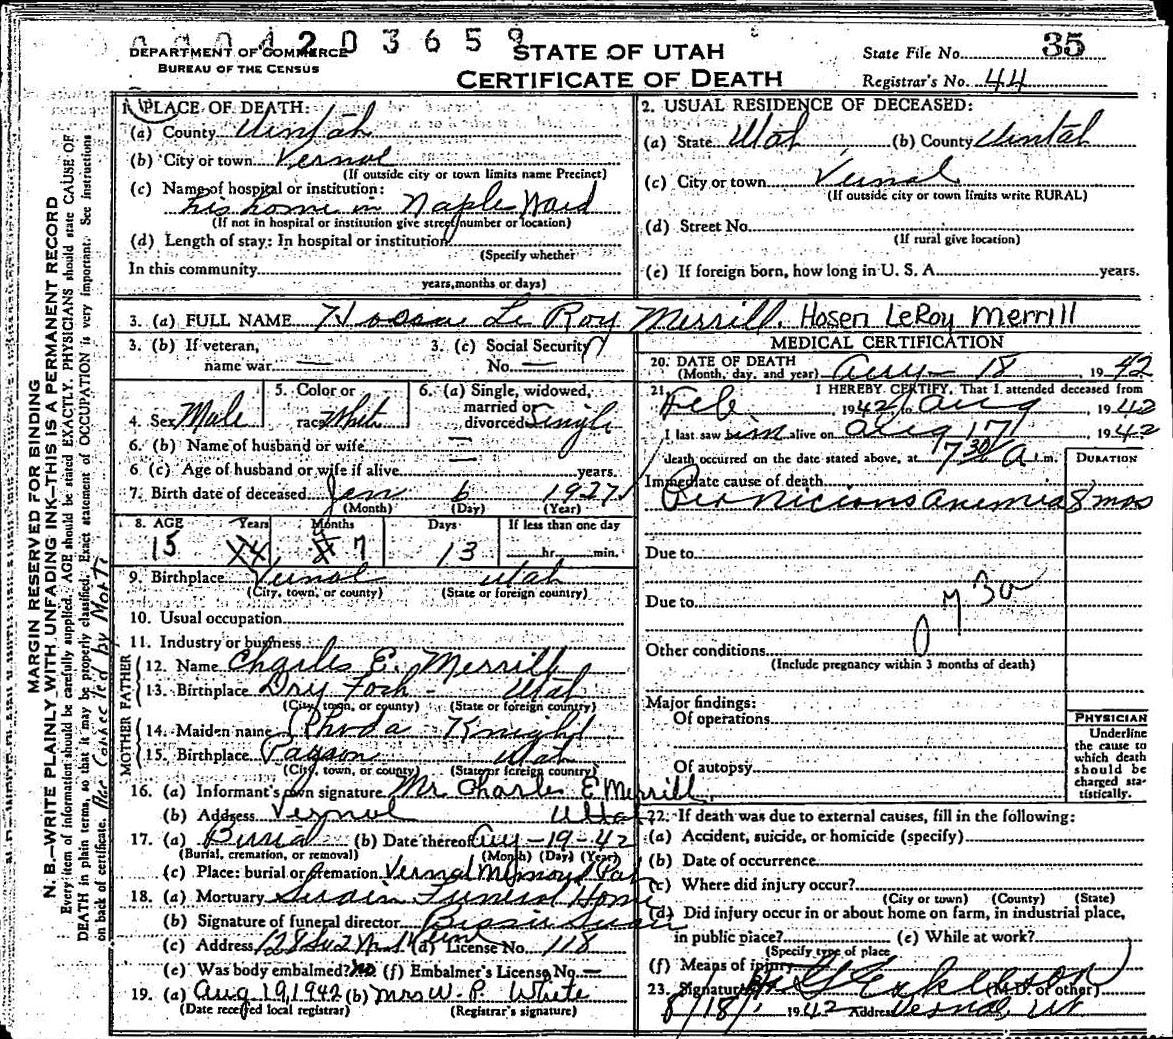 DEPARTMENT OF COMMERCE
BUREAU OF THE CENSUS
4203659
STATE OF UTAH
CERTIFICATE OF DEATH
State File No. 35
Registrar's No. 44
MARGIN RESERVED FOR BINDING
N. B.—WRITE PLAINLY, WITH UNFADING INK—THIS IS A PERMANENT RECORD
Every item of information should be carefully supplied. AGE should be stated EXACTLY. PHYSICIANS should state CAUSE OF
DEATH in plain terms, so that it may be properly classified. Exact statement of OCCUPATION is very important. See instructions
on back of certificate.
1. PLACE OF DEATH:
(a) County Uintah
(b) City or town Vernal
(If outside city or town limits name Precinct)
(c) Name of hospital or institution:
his home in Naples Ward
(If not in hospital or institution give street number or location)
(d) Length of stay: In hospital or institution
(Specify whether
In this community
years, months or days)
2. USUAL RESIDENCE OF DECEASED:
(a) State Utah (b) County Uintah
(c) City or town Vernal
(If outside city or town limits write RURAL)
(d) Street No.
(If rural give location)
(e) If foreign born, how long in U. S. A. years.
3. (a) FULL NAME Le Roy Merrill. Hosen LeRoy Merrill
3. (b) If veteran, name war —
3. (c) Social Security No. —
4. Sex Male
5. Color or race White
6. (a) Single, widowed, married or divorced Single
6. (b) Name of husband or wife —
6 (c) Age of husband or wife if alive years.
7. Birth date of deceased Jan 6 1927
(Month) (Day) (Year)
8. AGE Years Months Days If less than one day
15 14 7 13 hr. min.
9. Birthplace Vernal Utah
(City, town, or county) (State or foreign country)
10. Usual occupation
11. Industry or business
FATHER
12. Name Charles E. Merrill
13. Birthplace Dry Fork - Utah
(City, town, or county) (State or foreign country)
MOTHER
14. Maiden name Rhoda Knight
15. Birthplace Payson Utah
(City, town, or county) (State or foreign country)
16. (a) Informant's own signature Mr Charles E Merrill.
(b) Address Vernal Utah
17. (a) Burial (b) Date thereof Aug-19-42
(Burial, cremation, or removal) (Month) (Day) (Year)
(c) Place: burial or cremation Vernal Memorial Park
18. (a) Mortuary Swain Funeral Home
(b) Signature of funeral director
(c) Address (d) License No. 118
(e) Was body embalmed? no (f) Embalmer's License No. —
19. (a) Aug 19, 1942 (b) Mrs W. P. White
(Date received local registrar) (Registrar's signature)
MEDICAL CERTIFICATION
20. DATE OF DEATH
(Month, day, and year) Aug - 18, 1942
21. I HEREBY CERTIFY, That I attended deceased from
Feb, 1942 to Aug 1942
I last saw him alive on Aug 17, 1942
death occurred on the date stated above, at 7 30/A m.
DURATION
Immediate cause of death
Pernicious anemia 8 mos
Due to
Due to
Other conditions
(Include pregnancy within 3 months of death)
Major findings:
Of operations
Of autopsy
PHYSICIAN
Underline
the cause to
which death
should be
charged sta-
tistically.
22. If death was due to external causes, fill in the following:
(a) Accident, suicide, or homicide (specify)
(b) Date of occurrence
(c) Where did injury occur?
(City or town) (County) (State)
(d) Did injury occur in or about home on farm, in industrial place,
in public place? (e) While at work?
(Specify type of place
(f) Means of injury
23. Signature (M.D. or other)
8/18/, 1942 Address Vernal Ut